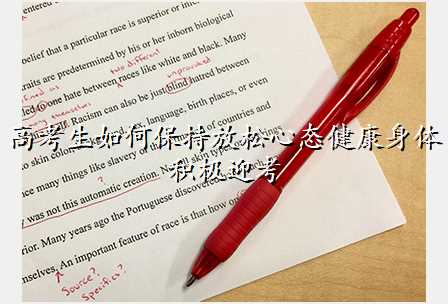 entered
belief that a particular race is superior or infer
traits are predetermined by his or her inborn biological
two different
unprovoked
led to one hate between races like white and black. Many
themselves
self. Racism can also be just blind hatred between
language, birth places, or even
高考生如何保持放松心态健康身体
to skin color
of countries and
积极迎考
nce many things like slavery of
?
y was not this automatic creation. N
skin type
rior. Many years ago the Portuguese discovered
mselves. An important feature of race is that how
Source?
Specifics?